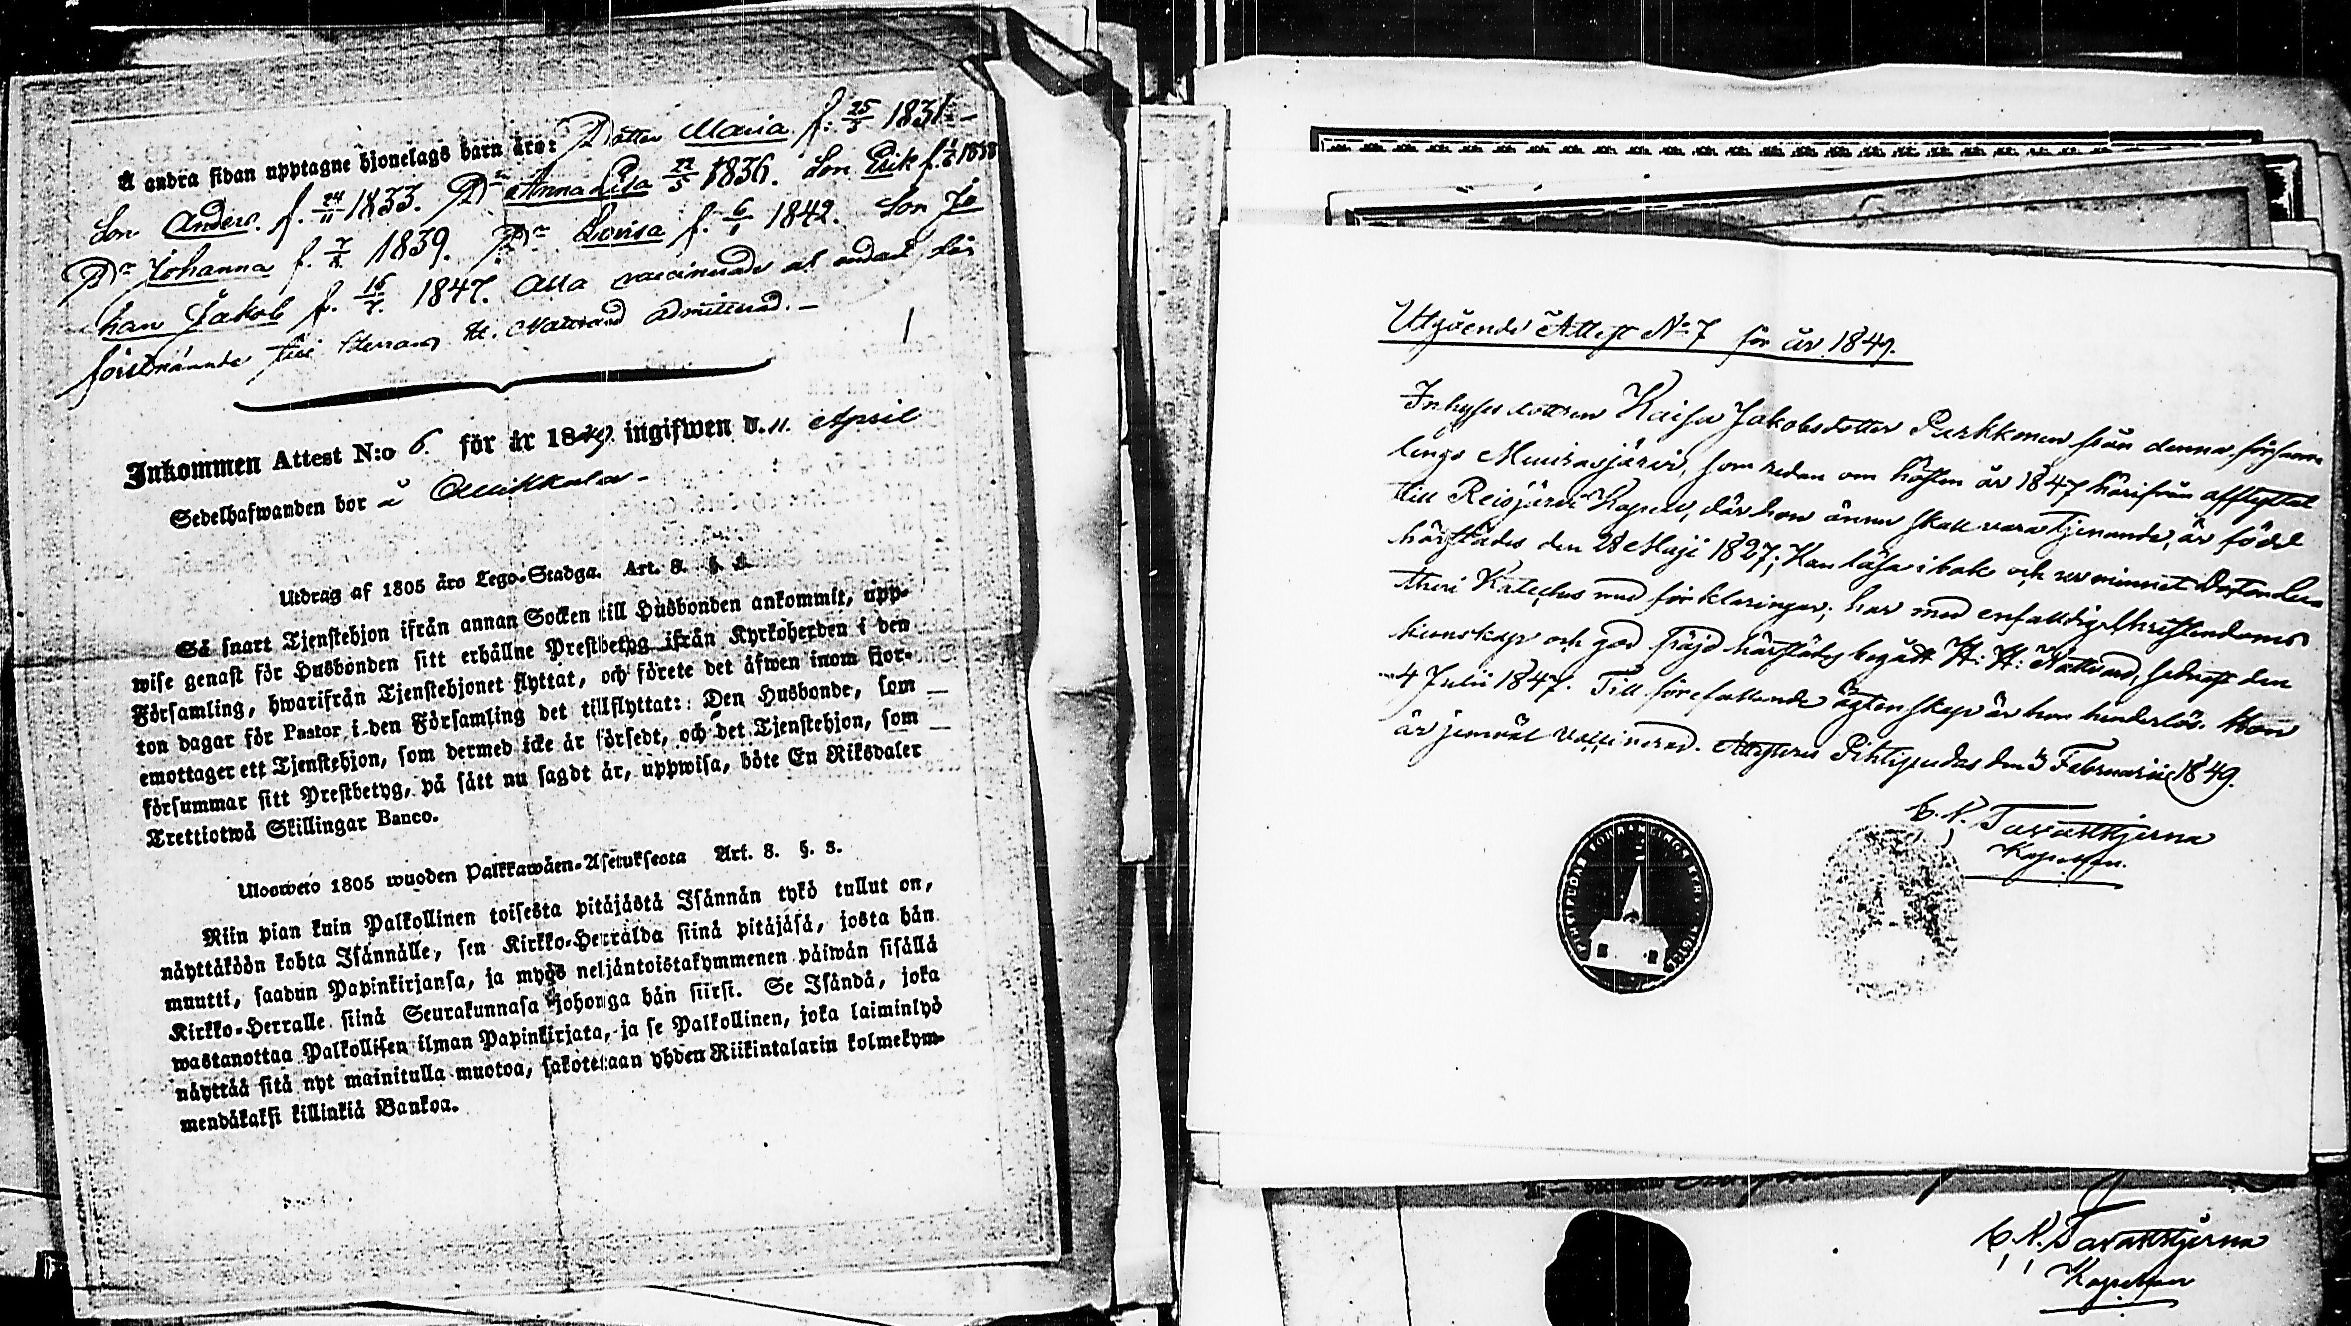 Å andra sidan upptagne hjonelags barn äro: Dotter Maria f. 25/3 1831
Son Anders f. 24/11 1833. Dr Anna Lisa 22/5 1836. Son Erik f. 1838
Dr Johanna f. 1839. Dr Lovisa f. 6/1 1842. Son Jo
han Jakob f. 16/7 1847. Alla vaccinerade och endast den
förstnämnda till Herrans H. Nattvard admitterad. —
Inkommen Attest N:o 6. för år 1849. ingifwen d. 11 April
Sedelhafwanden bor å Mikkala -
Utdrag af 1805 års Lego-Stadga. Art. 8. §.
Så snart Tjenstehjon ifrån annan Socken till Husbonden ankommit, upp-
wise genast för Husbonden sitt erhållne Prestbetyg ifrån Kyrkoherden i den
Församling, hwarifrån Tjenstehjonet flyttat, och förete det äfwen inom fjor-
ton dagar för Pastor i den Församling det tillflyttat: Den Husbonde, som
emottager ett Tjenstehjon, som dermed icke är försedt, och det Tjenstehjon, som
försummar sitt Prestbetyg, på sätt nu sagdt är, uppwisa, böte En Riksdaler
Trettiotwå Skillingar Banco.
Uloswето 1805 wuoden Palkkawäen-Asetuksesta Art. 8. §. 3.
Niin pian kuin Palkollinen toisesta pitäjästä Isännän tykö tullut on,
näyttäköön kohta Isännälle, sen Kirkko-Herralda siinä pitäjäsä, josta hän
muutti, saadun Papinkirjansa, ja myös neljäntoistakymmenen päiwän sisällä
Kirkko-Herralle siinä Seurakunnasa johonga hän siirsi. Se Isändä, joka
wastanottaa Palkollisen ilman Papinkirjata, ja se Palkollinen, joka laiminlyö
näyttää sitä nyt mainitulla muotoa, sakotetaan yhden Riikintalarin kolmekym-
mendäkaksi killinkiä Bankoa.
Utgående Attest No 7 för år 1849.
Inhyses dottren Kaisa Jakobsdotter Purkkonen från denna försam
lings Muurasjärvi, som redan om hösten år 1847 härifrån afflyttat
till Reisjärvi Kapell, där hon ännu skall vara tjenande, är född
härstädes den 28 Maji 1827; Kan läsa i bok och ur minnet Doctor Lu
theri Kateches med förklaringar; har med enfaldig Christendoms
kunskap och god fräjd härstädes begått H: H: Nattvard, sednast den
4 Julii 1847. Till förefallande äktenskap är hon hinderlös. Hon
är jemväl vaccinerad. Attesteras Pihtipudas den 3 Februarii 1849.
C. N. Tavaststjerna
Kapellan.
C. N. Tavaststjerna
Kapellan